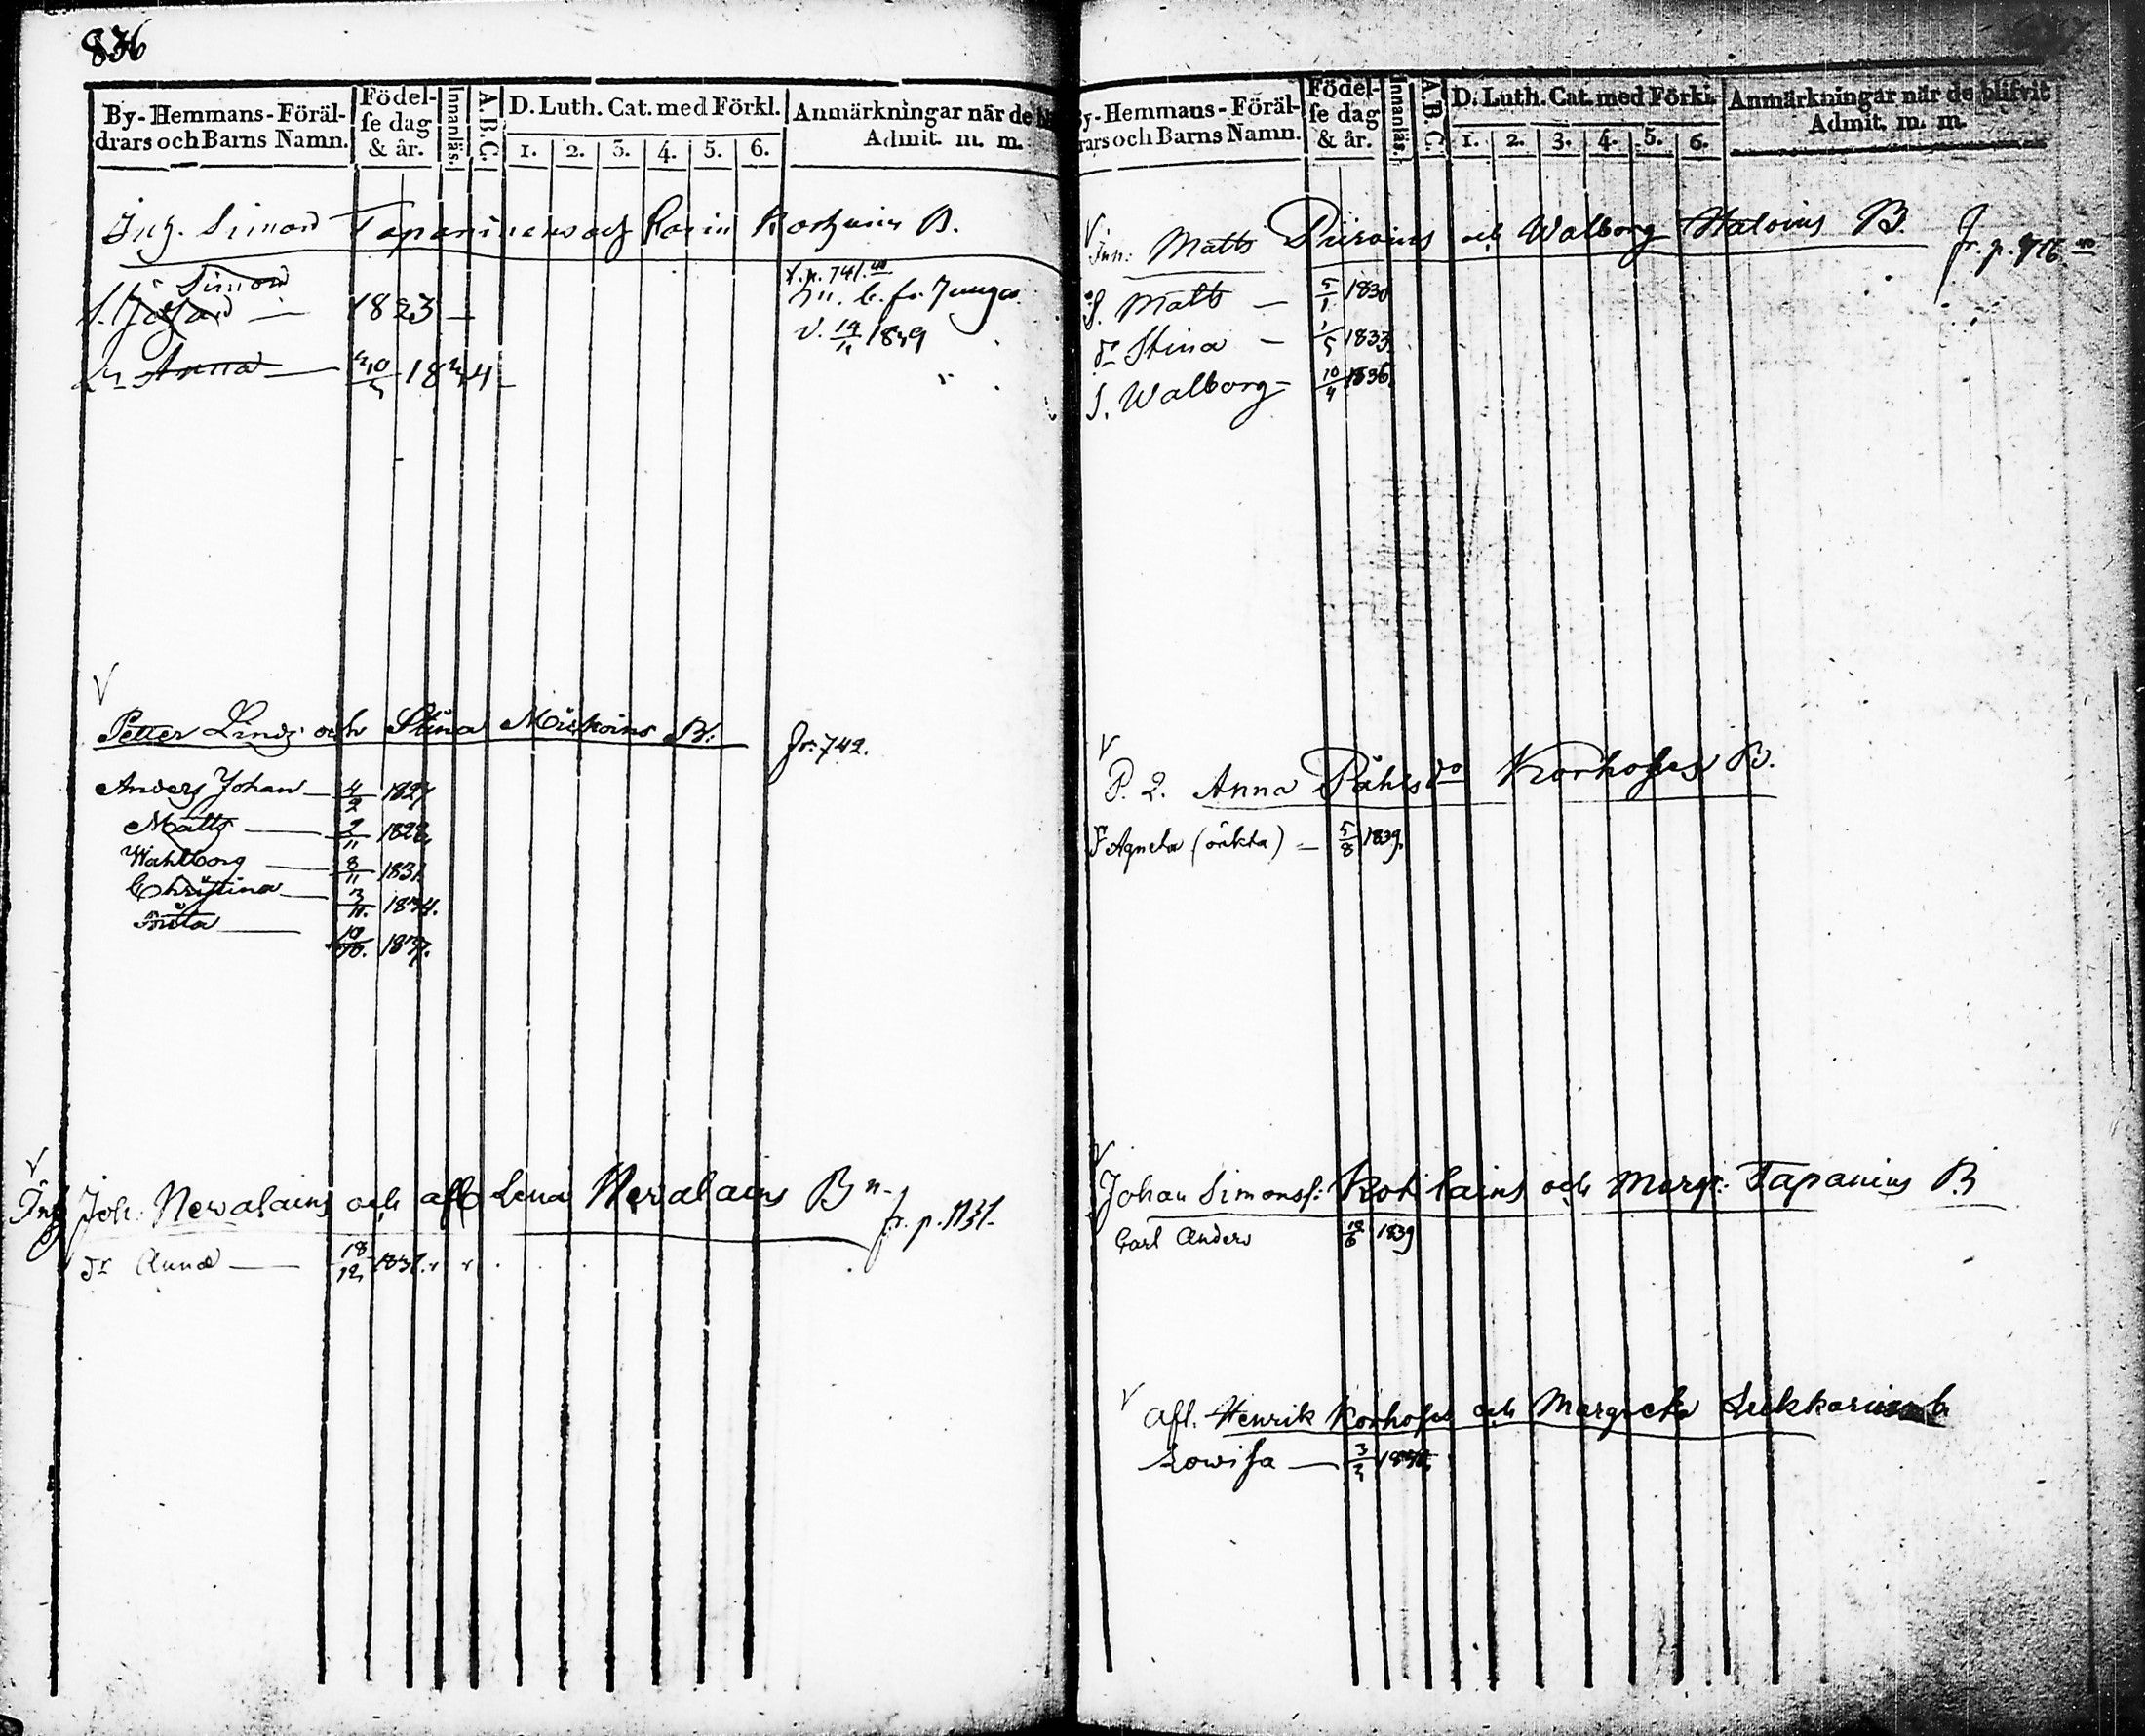 836
By-Hemmans-Föräl-
drars och Barns Namn.
Födel-
se dag
& år.
Innanläs.
A.B.C.
D. Luth. Cat. med Förkl.
1. 2. 3. 4. 5. 6.
Anmärkningar när de
Admit. m. m.
Inh. Simon Tapaninens och Karin B.
S. Simon — 1823 —
Anna — 1824
f. p. 741.
14/11 1839
Petter Lind och Stina Miskoins B. fr. 742.
Anders Johan — 4/2 1827
Matts — 1828
Wahlborg — 8/11 1831
Christina — 3/11. 1834.
Brita — 10/10. 1837.
Inh Joh. Newalains och afl Lena Newalains Bn. fr. p. 1131.
dr Anna — 18/12 1831
y-Hemmans-Föräl-
rars och Barns Namn.
Födel-
se dag
& år.
Innanläs.
A.B.C.
D. Luth. Cat. med Förkl.
1. 2. 3. 4. 5. 6.
Anmärkningar när de blifvit
Admit. m. m.
Inh: Matts Piiroins och Walborg Haloins B. fr. p.
S. Matts — 5/1 1830
dr Stina — 1/5 1833
Walborg — 10/4 1836
P. 2. Anna Påhlsdo Korhoses B.
Agneta (oäkta) — 5/8 1839
Johan Simonss: Kokilains och Margr: Tapanins B
Carl Anders 1839
Afl. Henrik Korhoses och Margreta b
Lowisa —